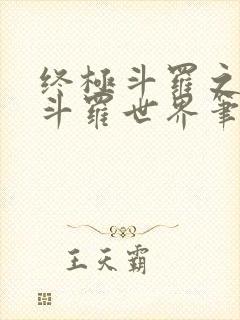 终极斗罗之
斗罗世界筆
王天霸